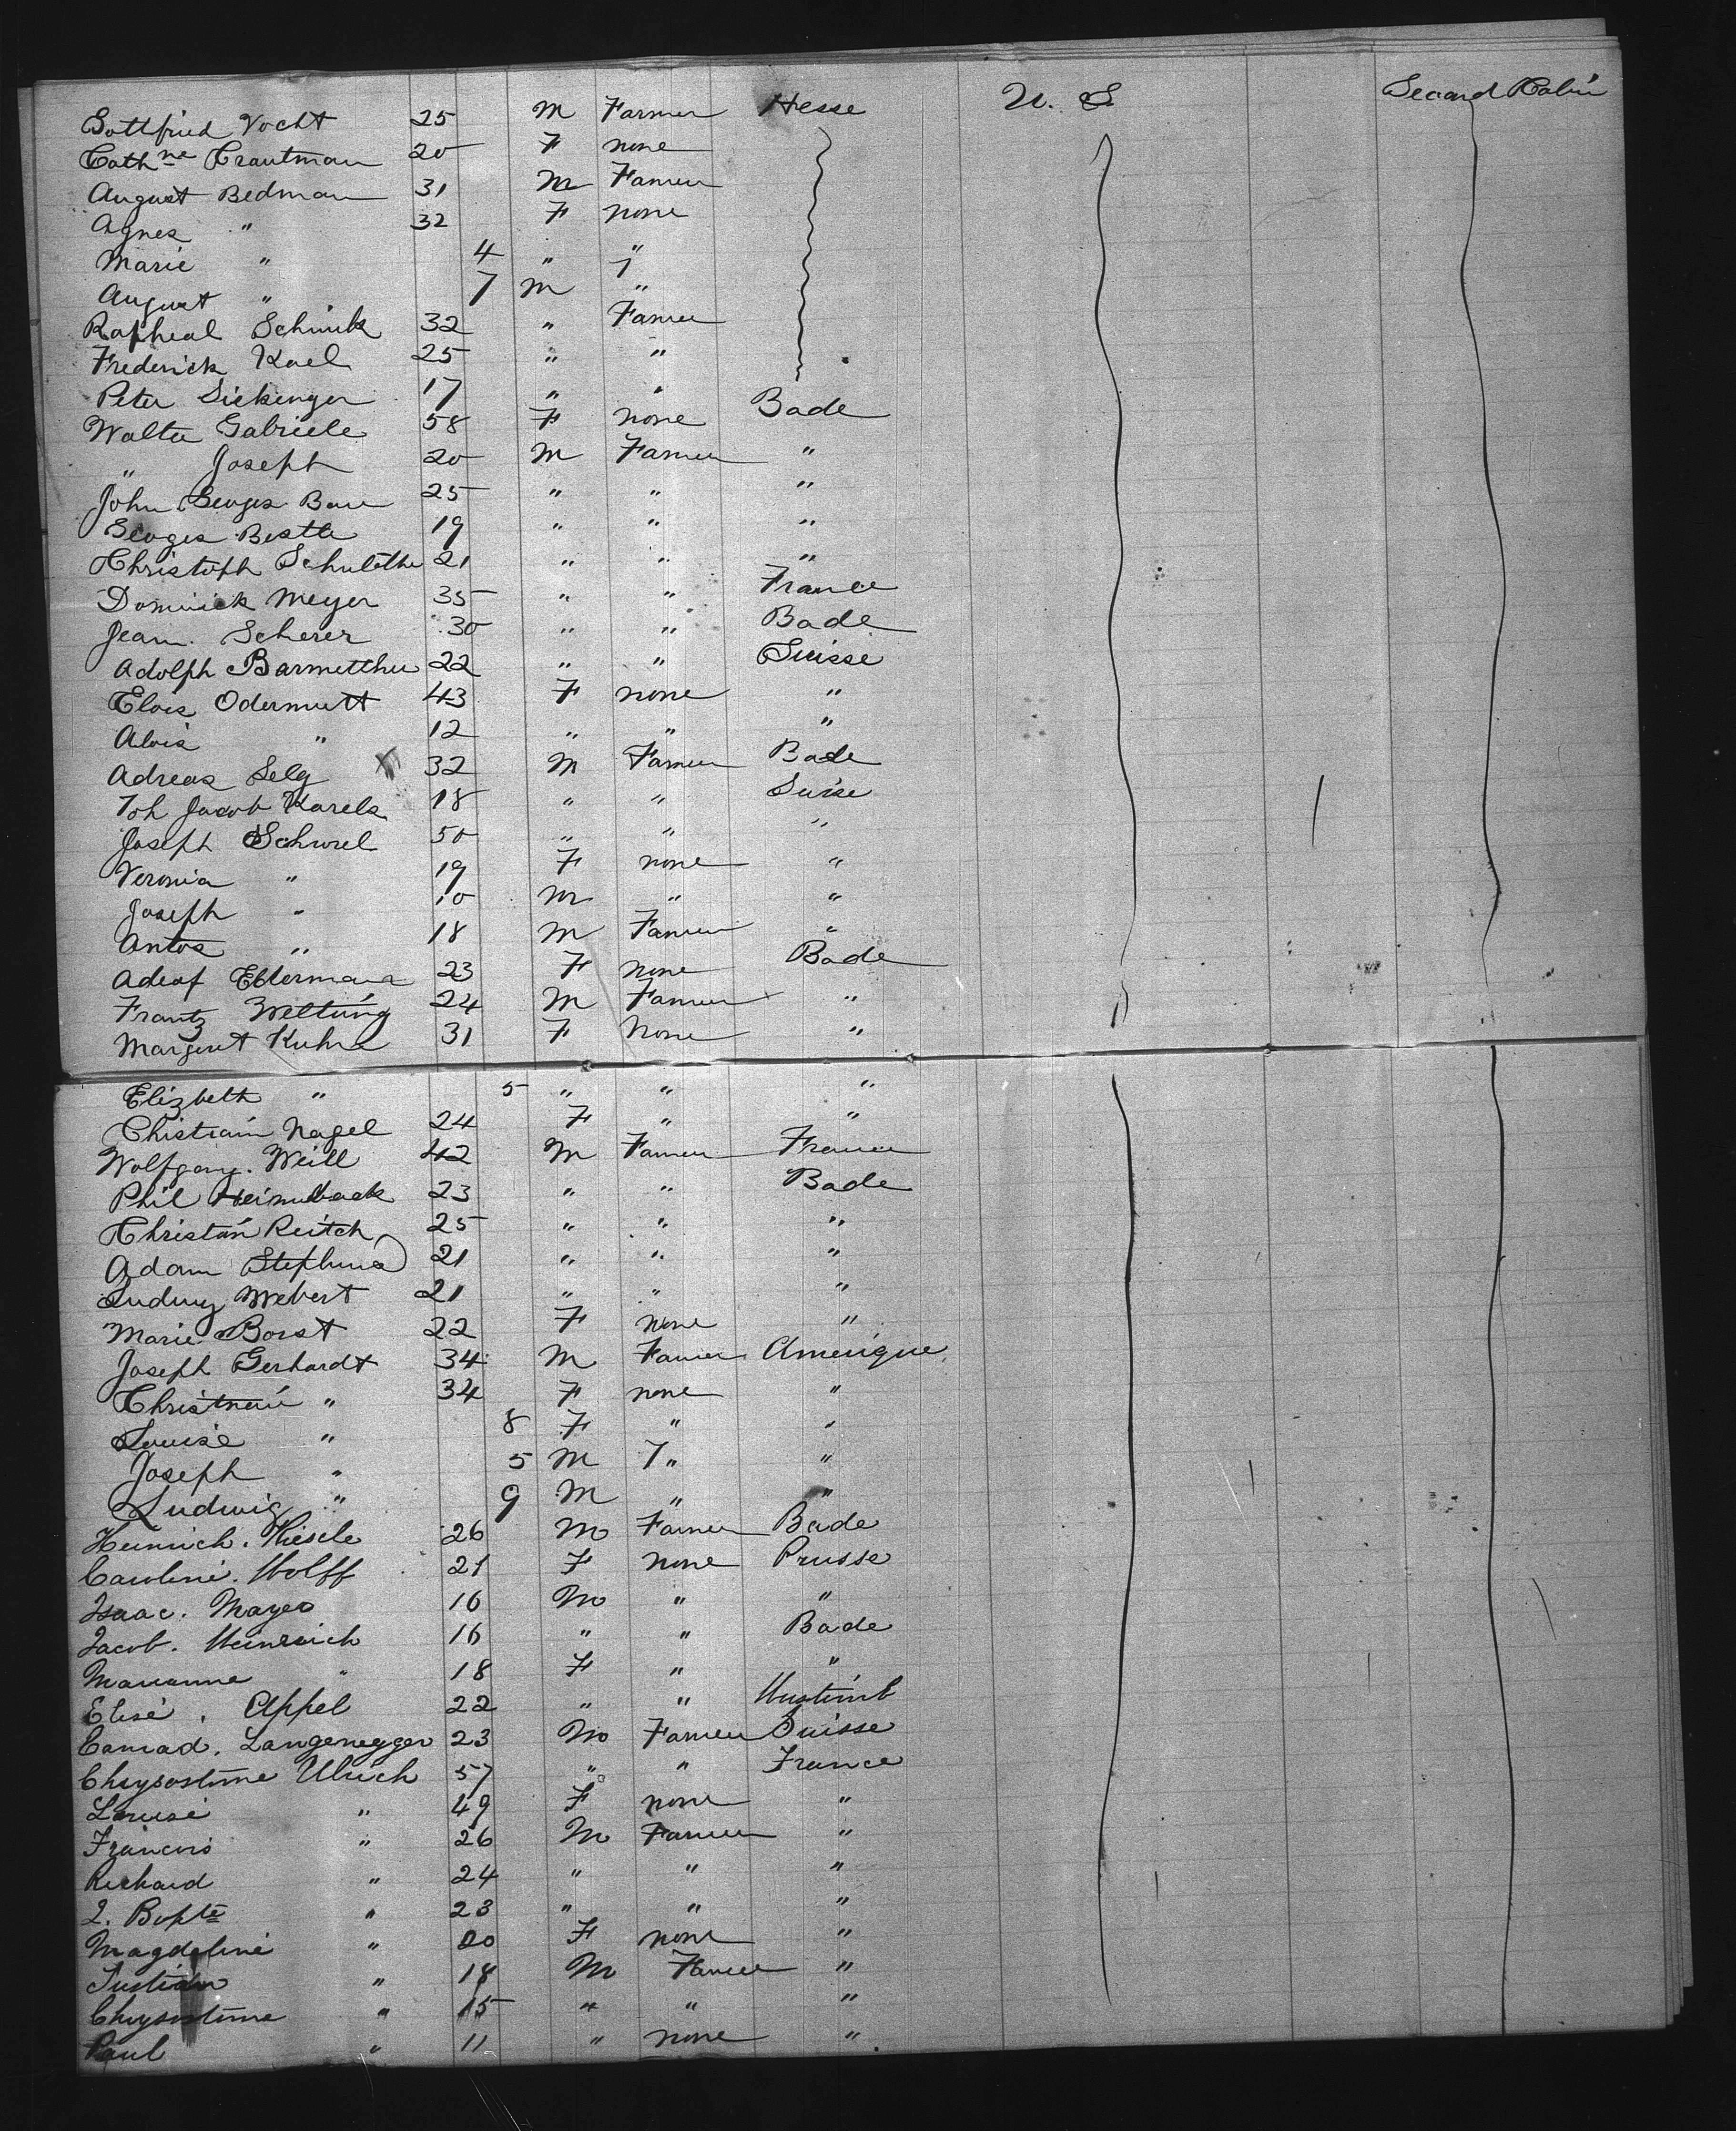 Gottfried Vocht 25 M Farmer Hesse U. S. Second Cabin
Cath ne Trautman 20 F none
August Bedman 31 M Farmer
Agnes " 32 F none
Marie " 4 " "
August " 7 M "
Rapheal Schmik 32 " Farmer
Frederick Kael 25 " "
Peter Sickenger 17 " "
Walter Gabriele 58 F none Bade
" Joseph 20 M Farmer "
John Georges Baue 25 " " "
Georges Bestle 19 " " "
Christoph 21 " " "
Dominick Meyer 35 " " France
Jean Scherer 30 " " Bade
Adolph Barmetther 22 " " Suisse
Elois Odermutt 43 F none "
Alois " 12 " " "
Adreas Selg X 32 M Farmer Bade
Joh Jacob Karels 18 " " Suisse
Joseph Schurel 50 " " "
Veronia " 19 F none "
Joseph " 10 M " "
Antos " 18 M Farmer "
Adeof Ellermana 23 F none Bade
Frantz Weltung 24 M Farmer "
Margaret Kuhne 31 F None "
Elizbeth " 5 " " "
Christiain Nagel 24 F " "
Wolfgang. Weill 42 M Farmer France
Phil 23 " " Bade
Christan Reitch 25 " " "
Adam Stephens 21 " " "
Ludwig Webert 21 " " "
Marie Borst 22 F none "
Joseph Gerhardt 34 M Farmer Amerique
Christnai " 34 F none "
Louise " 8 F " "
Joseph " 5 M " "
Ludwig " 9 M " "
Heinrich. Kiesele 26 M Farmer Bade
Caroline. Wolff 21 F none Prusse
Isaac. Mayer 16 M " "
Jacob. Heinrich 16 " " Bade
Marianne " 18 F " "
Elise. Appel 22 " " Wurtimb
Conrad. Langenegger 23 M Farmer Suisse
Chrysostime Ulrich 57 " " France
Louise " 49 F none "
Francois " 26 M Farmer "
Richard " 24 " " "
J. Bapte " 23 " " "
Magdeline " 20 F none "
Justian " 18 M Farmer "
Chrysostime " 15 " " "
Paul " 11 " none "